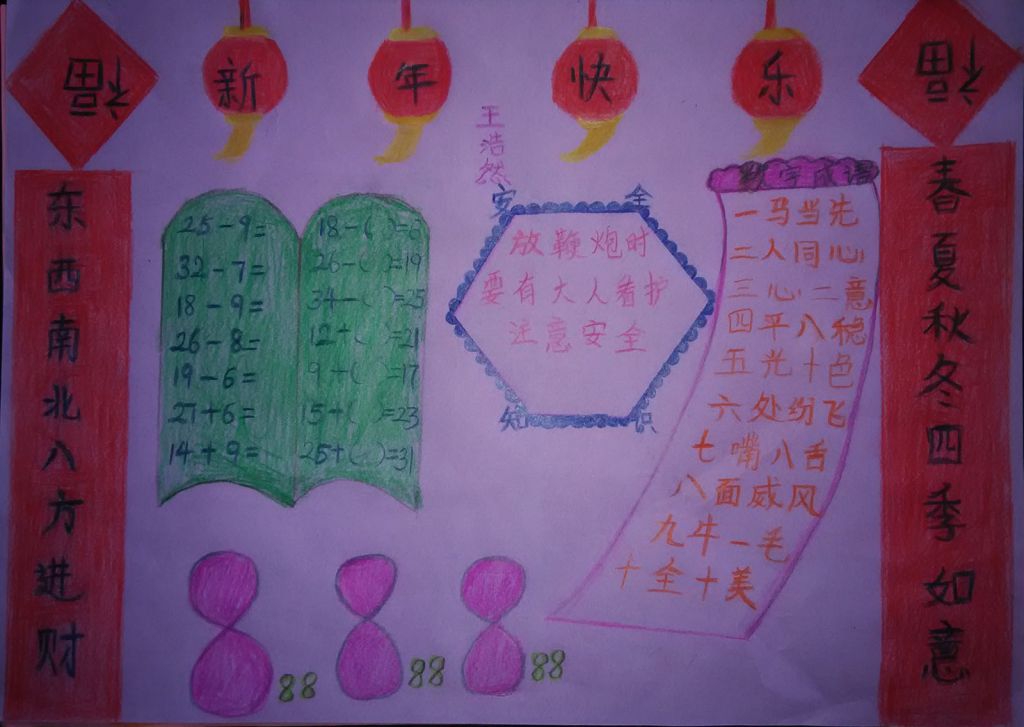 福
新年快乐
福
王浩然
东西南北八方进财
25-9=
32-7=
18-9=
26-8=
19-6=
27+6=
14+9=
18-( )=6
26-( )=19
34-( )=25
12+( )=21
9+( )=17
15+( )=23
25+( )=31
安全
放鞭炮时
要有大人看护
注意安全
知识
数字成语
一马当先
二人同心
三心二意
四平八稳
五光十色
六处纷飞
七嘴八舌
八面威风
九牛一毛
十全十美
春夏秋冬四季如意
88
88
88